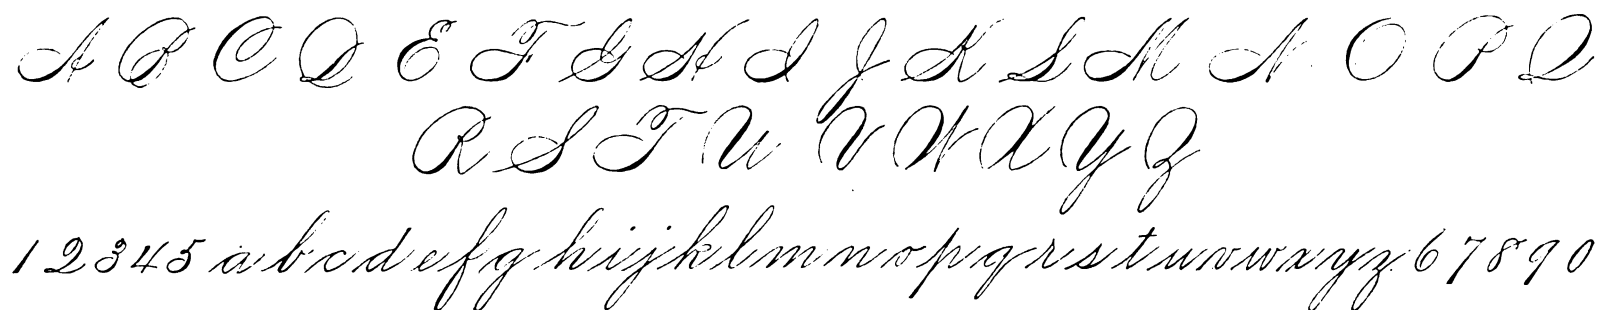 A B C D E F G H I J K L M N O P Q
R S T U V W X Y Z
1 2 3 4 5 a b c d e f g h i j k l m n o p q r s t u v w x y z 6 7 8 9 0